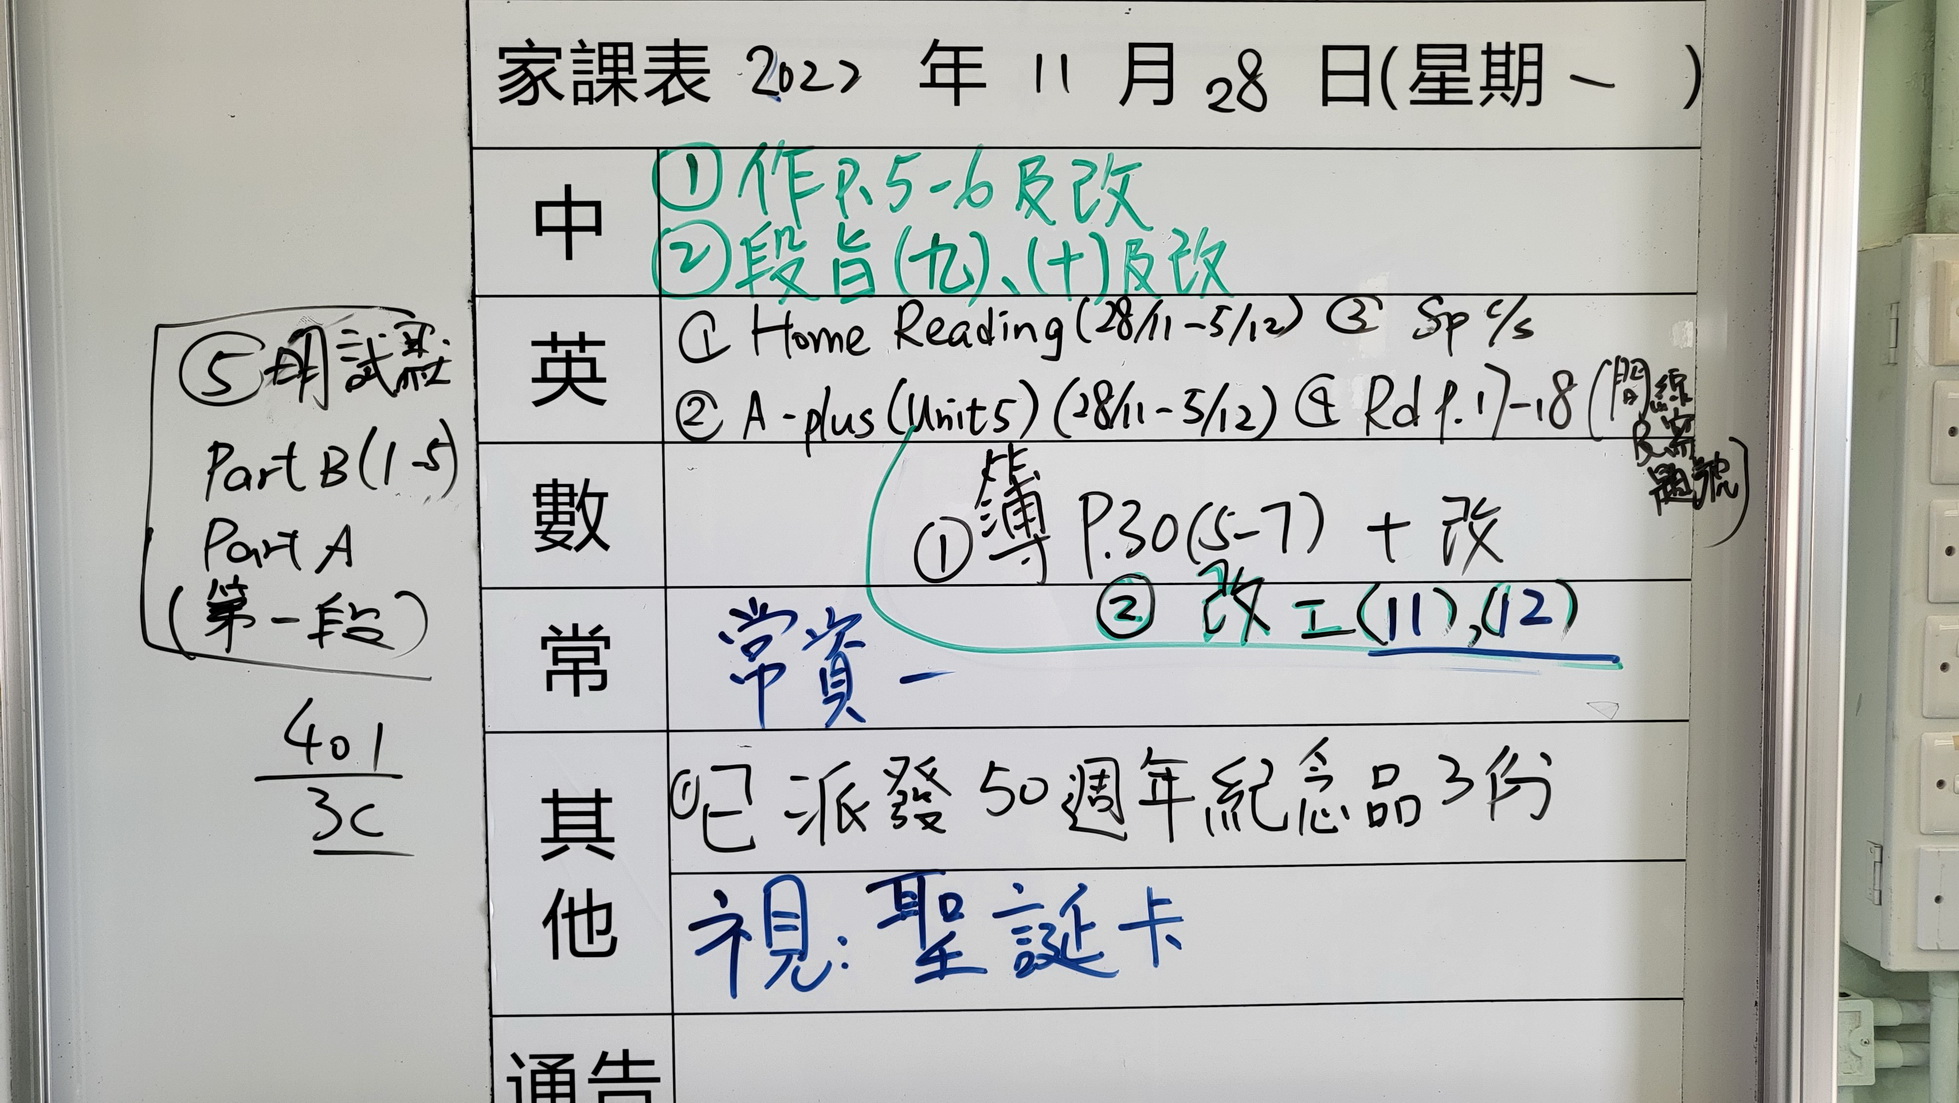 家課表 2022 年 11 月 28 日(星期一 )
中
① 作P.5-6及改
② 段旨(九)、(十)及改
英
① Home Reading (28/11-5/12) ③ Sp c/s
② A-plus (Unit 5) (28/11-5/12) ④ Rd P.17-18 (間線
及寫
題號)
⑤ 明試
Part B (1-5)
Part A
(第一段)
數
① 簿 P.30(5-7) + 改
② 改工(11),(12)
常
常資一
401
3C
其他
① 已派發50週年紀念品3份
視:聖誕卡
通告